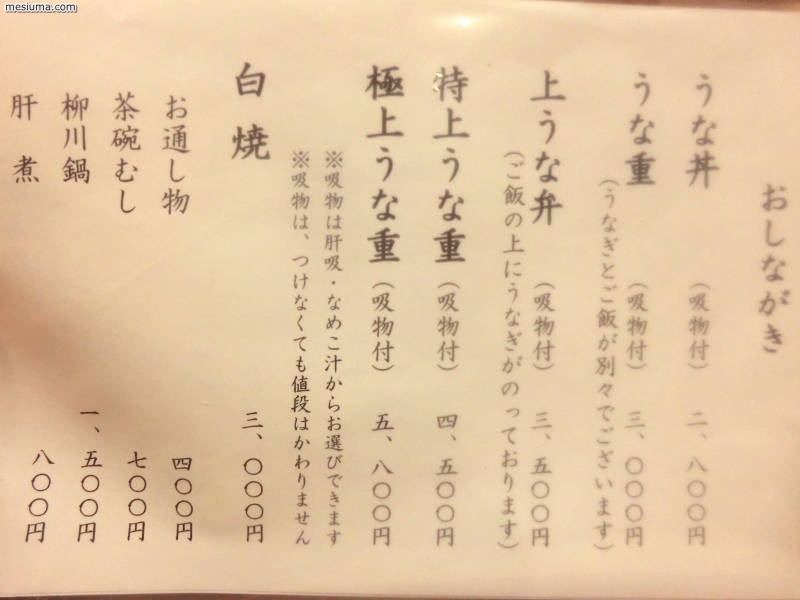 mesiuma.com
おしながき
うな丼 (吸物付) 二、八〇〇円
うな重 (吸物付) 三、〇〇〇円
(うなぎとご飯が別々でございます)
上うな弁 (吸物付) 三、五〇〇円
(ご飯の上にうなぎがのっております)
特上うな重 (吸物付) 四、五〇〇円
極上うな重 (吸物付) 五、八〇〇円
※吸物は肝吸・なめこ汁からお選びできます
※吸物は、つけなくても値段はかわりません
白焼 三、〇〇〇円
お通し物 四〇〇円
茶碗むし 七〇〇円
柳川鍋 一、五〇〇円
肝煮 八〇〇円